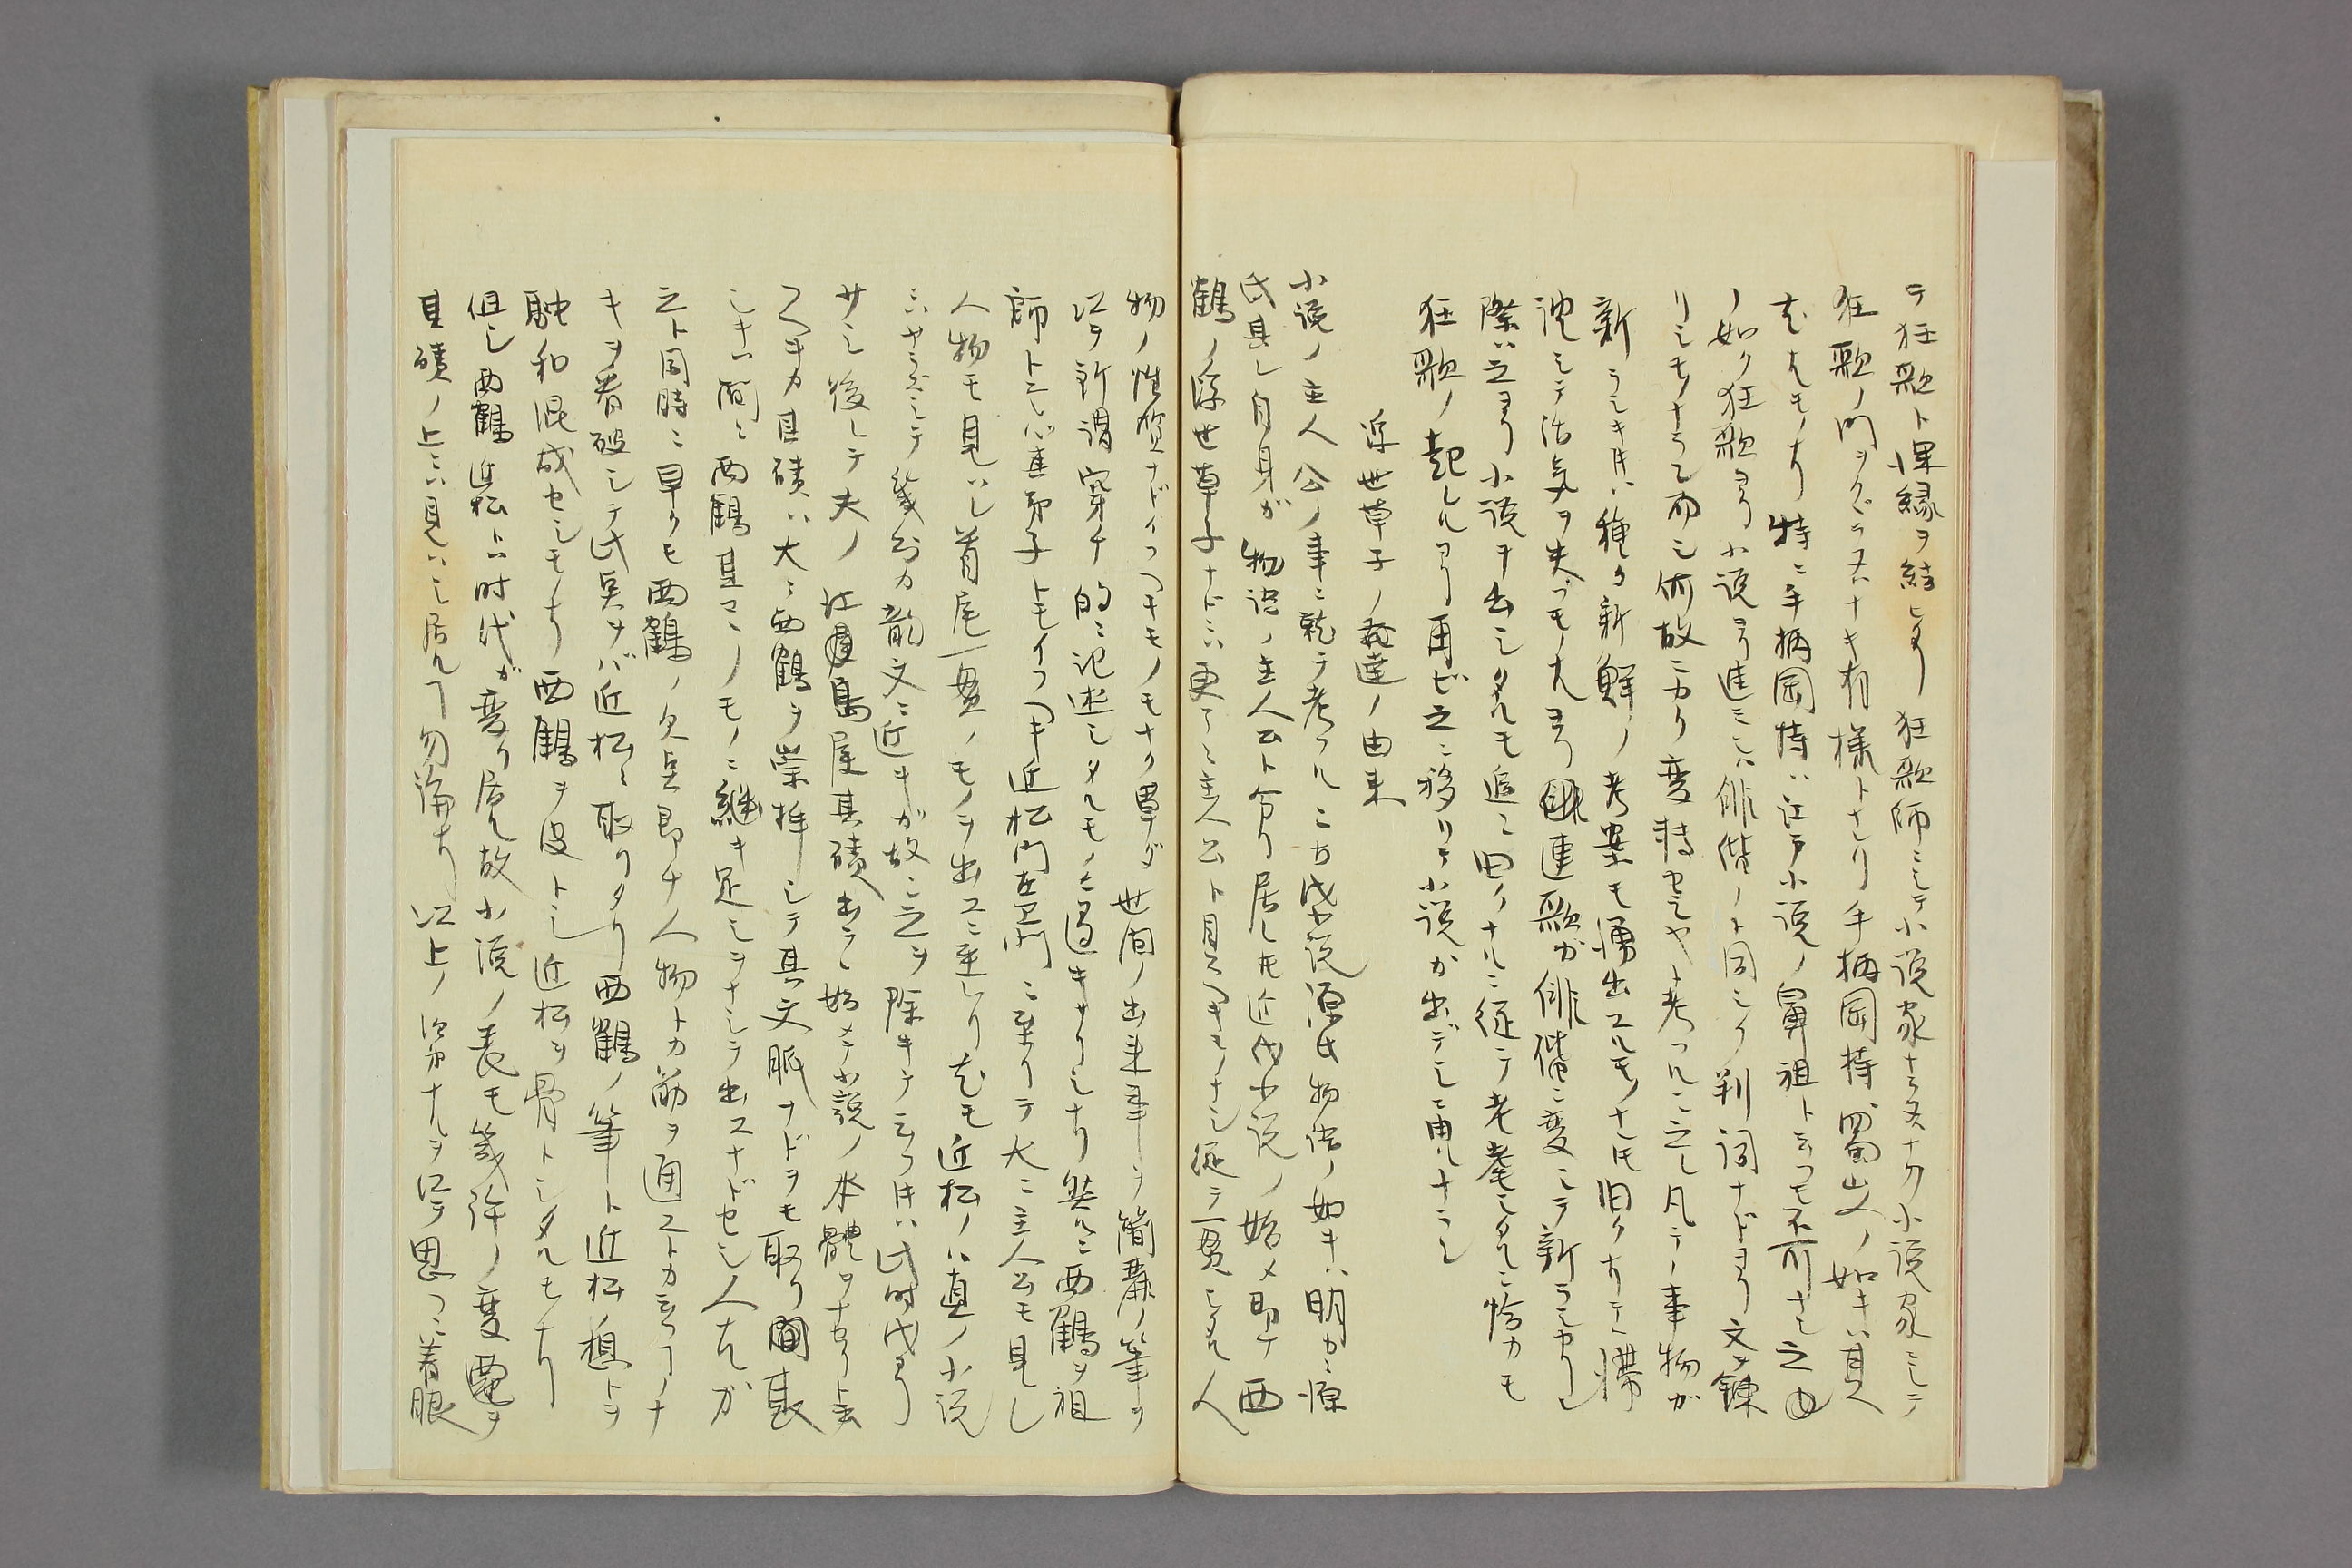 テ狂歌ト深縁ヲ結ビタリ 狂歌師ニシテ小説家ナラヌナク小説家ニシテ
狂歌ノ門ヲクヾラヌハナキ有様トナレリ手柄岡持、蜀山人ノ如キハ其
尤ナルモノナリ 特ニ手柄岡持ハ江戸小説ノ鼻祖ト云フモ不可ナシ之
ノ如ク狂歌ヨリ小説ヨリ進ミシハ俳偕ノト同ジク判詞ナドヨリ文ヲ錬
リシモノナラン而シ何故ニカク変転セシヤト考フルニ之レ凡テノ事物ガ
新ラシキ時ハ種々新鮮ノ考案モ湧出スルモノナレ共旧クナリテハ滞
沈シテ活気ヲ失フモノナルヨリ連歌ガ俳偕ニ変シテ新ラシカリシ
際ハ之ヨリ小説ヲ出シタルモ追々旧クナルニ従テ老耄シタルニ恰カモ
狂歌ノ起レルヨリ再ビ之ニ移リテ小説ガ出デシ
浮世草子ノ発達ノ由来
小説ノ主人公ノ事ニ就テ考フルニ古代小説源氏物語ノ如キハ明カニ源
氏其レ自身ガ物語ノ主人公ト分リ居レ共近代小説ノ始メ即チ西
鶴ノ浮世草子ナドニハ更ラニ主人公ト見ルヘキモノナシ従テ一貫シタル人
物ノ性質ナドイフヘキモノモナク単ダ世間ノ出来事ヲ簡潔ノ筆ヲ
以テ所謂穿チ的ニ記述シタルモノニ過キサリシナリ 然ルニ西鶴ヲ祖
師ト云ハヾ直弟子トモイフヘキ近松門左衛門ニ至リテ大ニ主人公モ見レ
人物モ見ハレ首尾一貫ノモノヲ出スニ至レリ尤モ近松ノハ真ノ小説
ニハヤラズシテ幾分カ韻文ニ近キガ故ニ之ヲ除キテ云フ時ハ此時代ヨリ
サシ後レテ夫ノ江島屋其磧出テ始メテ小説ノ本體ヲナセリト云
フヘキカ其磧ハ大ニ西鶴ヲ崇拝シテ其文脈ナドヲモ取リ間甚
シキハ間々西鶴其マヽノモノニ継キ足シヲナシテ出スナドセシ人ナルガ
之ト同時ニ早クモ西鶴ノ欠点即チ人物トカ筋ヲ通ストカ云フ事ナ
キヲ看破シテ此点ヲバ近松ニ取リタリ西鶴ノ筆ト近松ノ想トヲ
融和混成セシモノナリ 西鶴ヲ皮トシ近松ヲ骨トシタルモノナリ
但シ西鶴近松トハ時代ガ変リ居ル故小説ノ表モ幾許ノ変
其磧ノ上ニハ見ハレ居ル事勿論ナリ 以上ノ次第ナルヲ以テ思フニ着眼